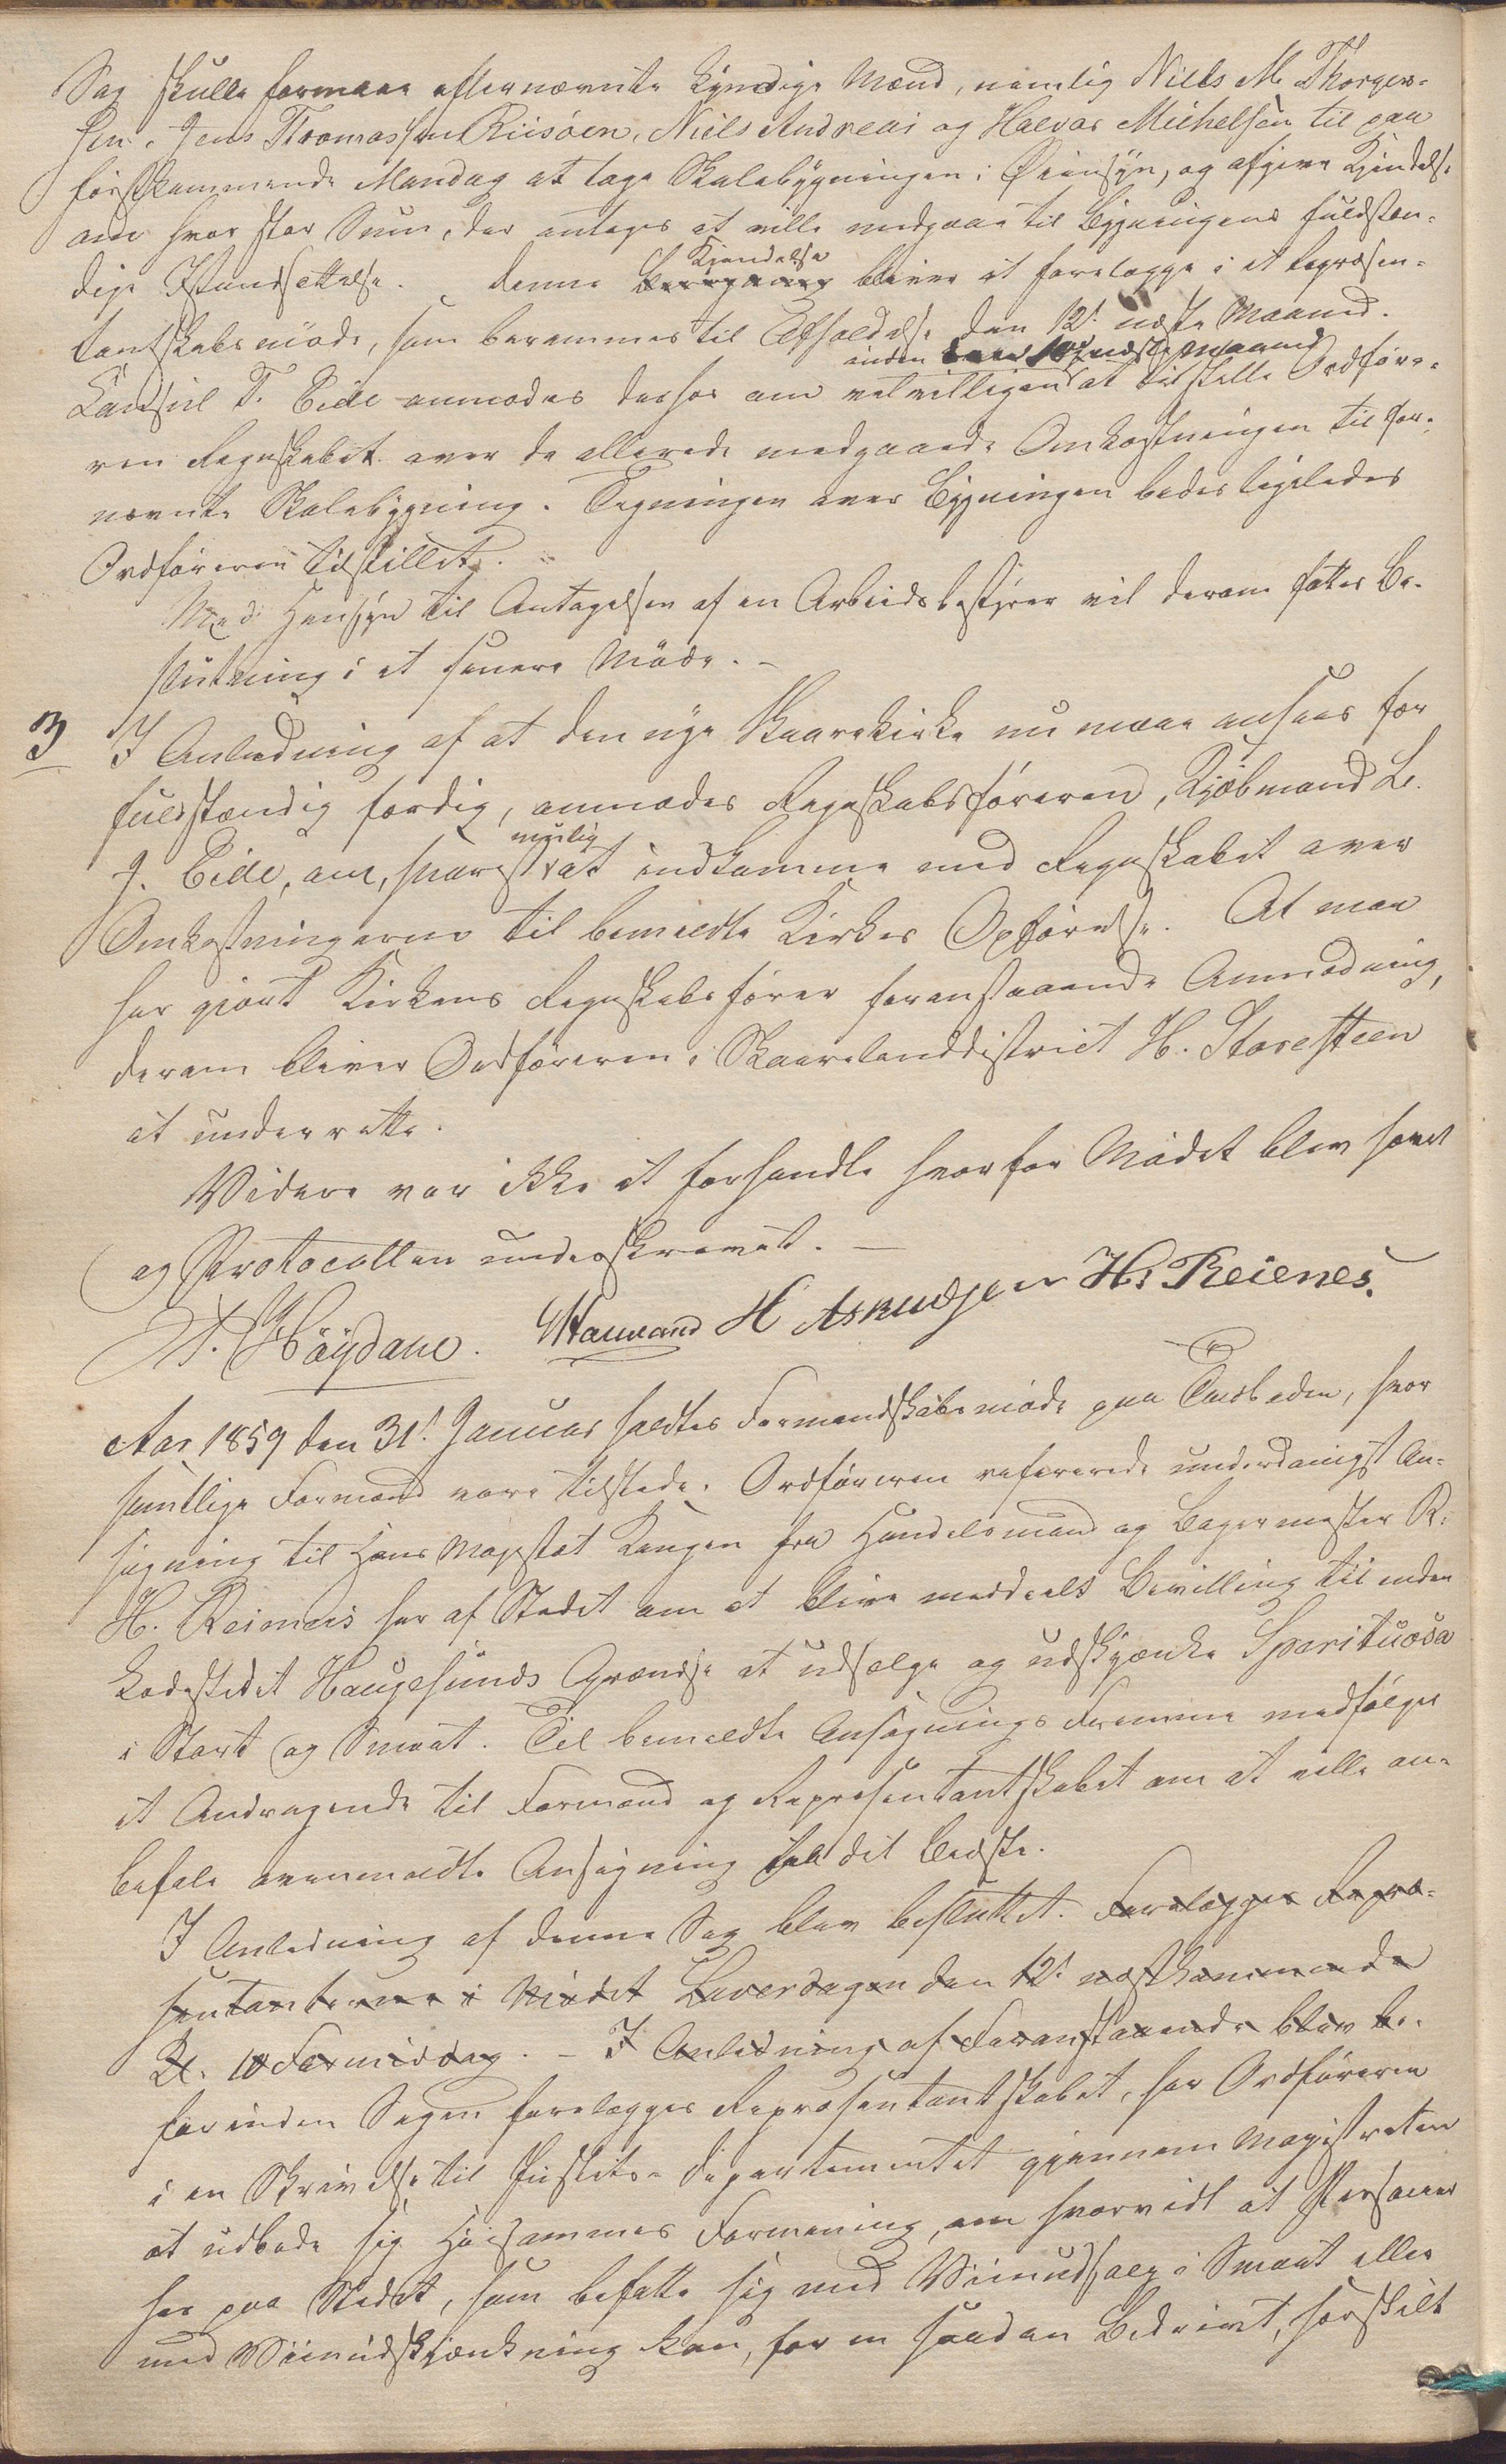 Sag skulle formaae efternævnte kyndige Mænd, nemlig Niels M. Thorgers-
sen, Jens Thomassen Riisöen, Niels Andreas og Halvor Michelsen til paa
förstkommende Mandag at tage Skolebygningen i Öiensyn, og afgive Kjendelse
om hvor stor Sum, der antages at ville medgaae til Bygningens fuldstæn-
dige Istandsættelse. Denne Kjendelse bliver at forelægge i et Repræsen-
tantskabsmöde, som berammes til Afholdelse den 12t næste Maaned.
inden næste Maaned
Consul T. Eide anmodes derhos om velvilligen at tilstille Ordföre-
ren Regnskabet over de allerede medgaaede Omkostninger til for-
nævnte Skolebygning. Tegningen over Bygningen bedes ligeledes
Ordföreren tilstillet.
Med Hensyn til Antagelsen af en Arbeidsbestyrer vil derom fattes Be-
slutning i et senere Möde. -
3 I Anledning af at den nye Skaarekirke nu maae ansees for
fuldstændig færdig, anmodes Regnskabsföreren, Kjöbmand L.
mulig
J. Eide, om, snarest at indkomme med Regnskabet over
Omkostningerne til bemeldte Kirkes Opförelse. At man
har gjort Kirkens Regnskabsförer foranstaaende Anmodning,
derom bliver Ordföreren i Skaarelanddistrict H. Storesteen
at underrette.
Videre var ikke at forhandle hvorfor Mödet blev hævet
og Protocollen underskrevet. -
H Asmudsen H. Reienes.
Aar 1859 den 31t Januar holdtes Formandskabsmöde paa Tidsbeden, hvor
samtlige Formænd vare tilstede. Ordföreren refererede underdanigst An-
sögning til Hans Majestæt Kongen fra Handelsmand og Bagermester R.
H. Reimers her af Stedet om at blive meddeelt Bevilling til inden
Ladestedet Haugesunds Grændse at udsælge og udskjænke Spirituosa
i Stort og Smaat. Til bemeldte Ansögnings Fremme medfölger
et Andragende til Formænd og Repræsentantskabet om at ville an-
befale ovenmeldte Ansögning til det Bedste.
I Anledning af denne Sag blev besluttet. Forelægges Repræ-
sentanterne i Mödet Löverdagen den 12t næstkommende
Kl. 10 Formiddag. - I Anledning af Foranstaaende blev be-
forinden Sagen forelægges Repræsentantskabet, har Ordföreren
i en Skrivelse til Justits-Departementet gjennem Magistraten
at udbede sig Höisammes Formening, om hvorvidt at Personer
her paa Stedet, som befatte sig med Viinudsalg i Smaat eller
med Viinudskjænkning kan, for en saadan Bedrivt, særskilt